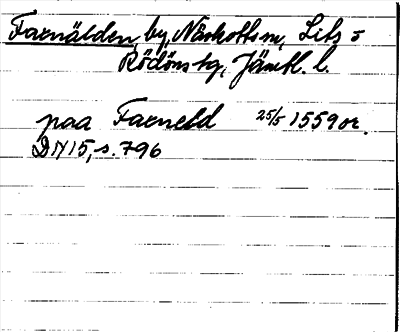 Farnälden, by, Näskotts sn, Lits o
Rödöns tg, Jämtl. l.
paa Farneld 25/5 1559 or.
DN 15, s. 796